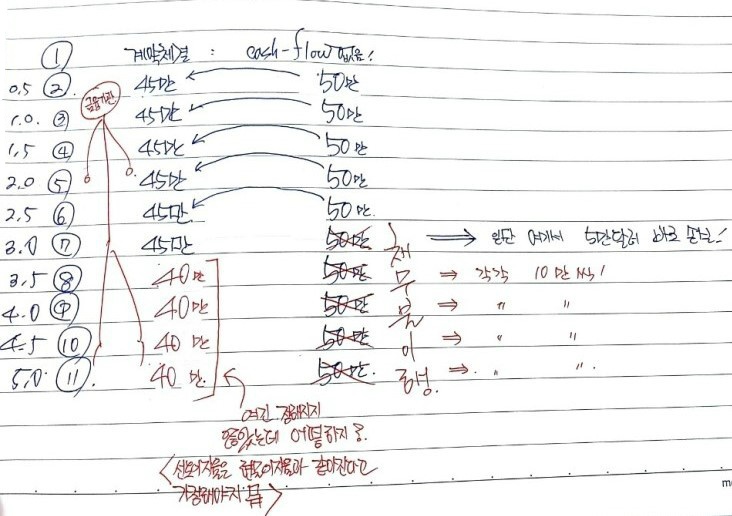 ① 계약체결 : cash-flow 없음!
0.5 ② 금융기관 45만 50만
1.0. ③ 45만 50만
1.5 ④ 45만 50만
2.0 ⑤ 45만 50만
2.5 ⑥ 45만 50만.
3.0 ⑦ 45만 50만 채 ⇒ 일단 여기서 5만달러 바로 손실!
3.5 ⑧ 40만 50만 무 ⇒ 각각 10만씩!
4.0 ⑨ 40만 50만 불 ⇒ " "
4.5 ⑩ 40만 50만 이 ⇒ " "
5.0 ⑪. 40만. 50만. 행. ⇒ . " ".
여긴 정해지지
않았는데 어떻하지?
<선도이자율은 현물이자율과 같아진다고
가정해야지 뭐>